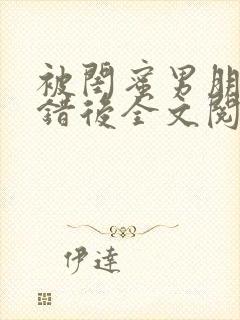 被閨蜜男朋
錯後全文閱
伊達